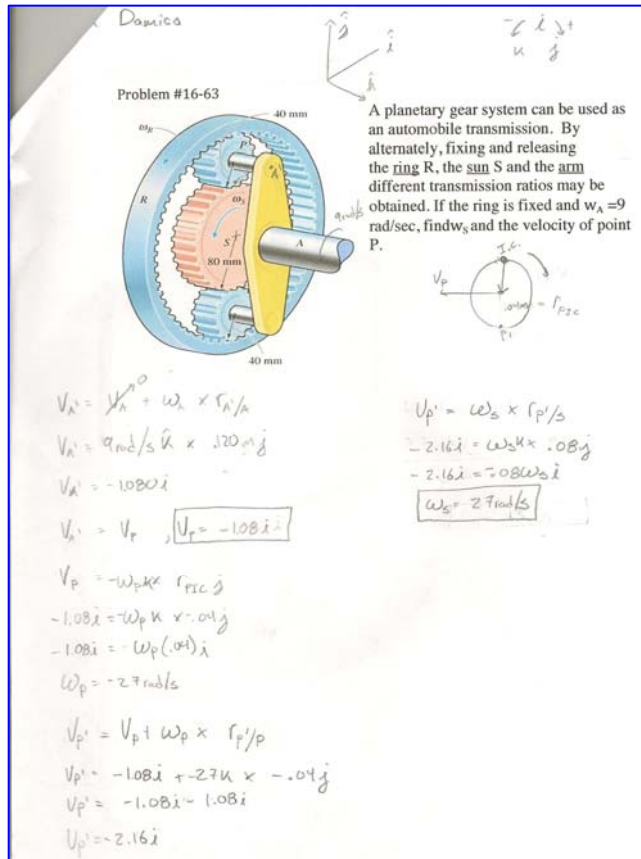 Damico
ĵ
î
k̂
- i +
k j
Problem #16-63
A planetary gear system can be used as
an automobile transmission. By
alternately, fixing and releasing
the ring R, the sun S and the arm
different transmission ratios may be
obtained. If the ring is fixed and w_A =9
rad/sec, findw_s and the velocity of point
P.
40 mm
ω_R
P
A'
R
ω_s
9rad/s
S
A
80 mm
40 mm
I.C.
V_P
.04m = r_PIC
P'
V_A' = V_A⁰ + ω_A × r_A'/A
V_A' = 9rad/s k̂ × .120m j
V_A' = -1.080 i
V_A' = V_P , V_P = -1.08 i
V_P = -ω_P k × r_PIC j
-1.08i = -ω_P k × -.04j
-1.08i = -ω_P(.04)i
ω_P = -27rad/s
V_P' = V_P + ω_P × r_P'/P
V_P' = -1.08i + -27k × -.04j
V_P' = -1.08i - 1.08i
V_P' = -2.16i
V_P' = ω_s × r_P'/s
-2.16i = ω_s k × .08j
-2.16i = -.08ω_s i
ω_s = 27rad/s